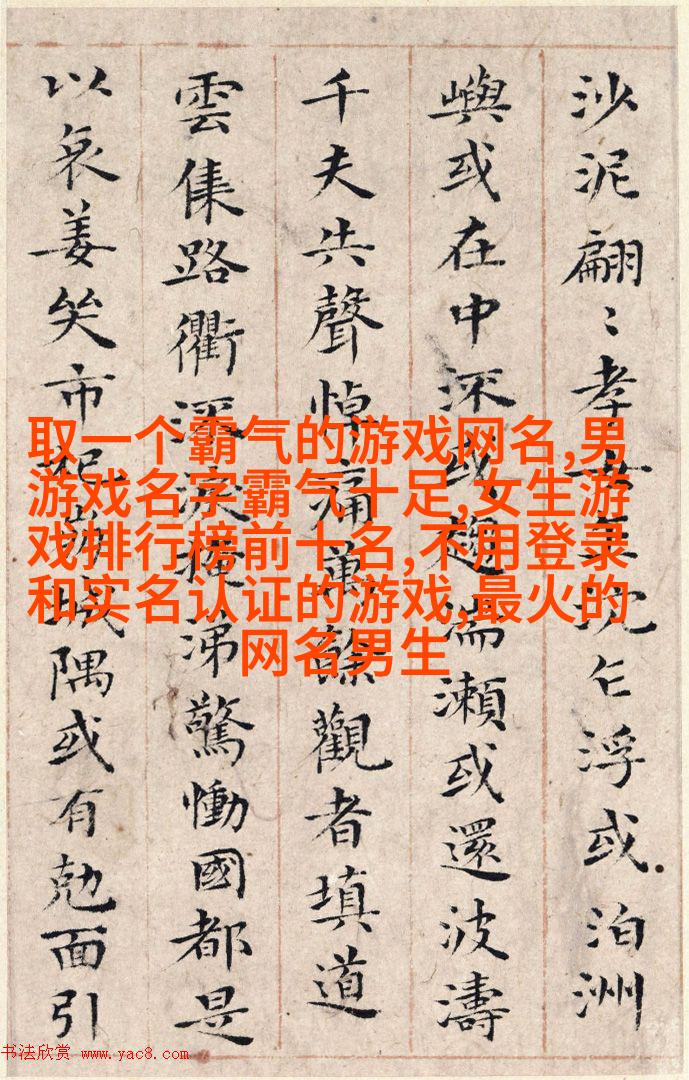 沙泥翩〻孝女乍沈乍浮或泊洲
嶼或在中流或趨湍瀨或還波濤
千夫失聲悼痛萬餘觀者填道
雲集路衢流淚掩涕驚慟國都是
以哀姜哭市杞崩城隅或有剋面引
取一个霸气的游戏网名,男
游戏名字霸气十足,女生游
戏排行榜前十名,不用登录
和实名认证的游戏,最火的
网名男生
书法欣赏 www.yac8.com